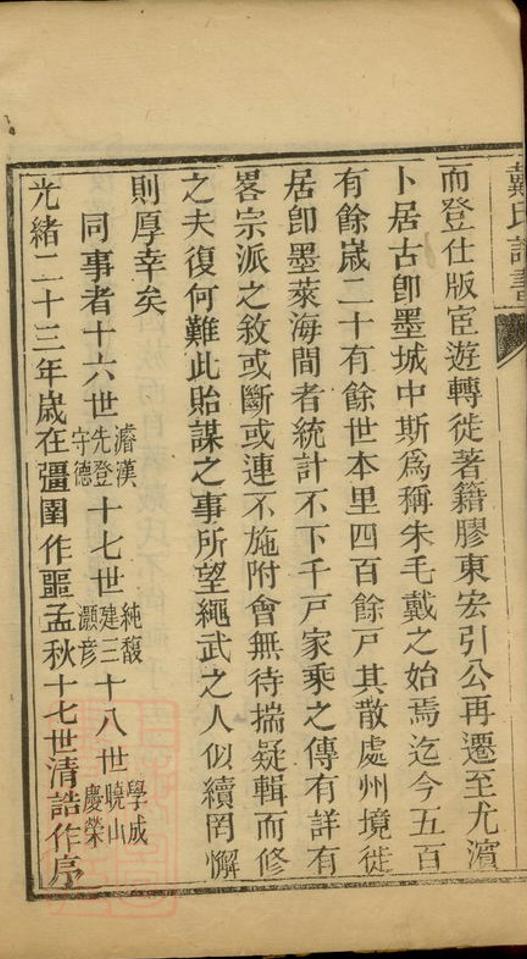 戴氏譜書
而登仕版宦遊轉徙著籍膠東宏引公再遷至尤濱
卜居古卽墨城中斯爲稱朱毛戴之始焉迄今五百
有餘嵗二十有餘世本里四百餘戸其散處州境徙
居卽墨萊海間者統計不下千戸家乘之傳有詳有
畧宗派之敘或斷或連不施附會無待揣疑輯而修
之夫復何難此貽謀之事所望繩武之人似續罔懈
則厚幸矣
同事者十六世濬漢先登守德十七世純馥建三灝彦十八世學成曉山慶榮
光緒二十三年嵗在彊圉作噩孟秋十七世清誥作序